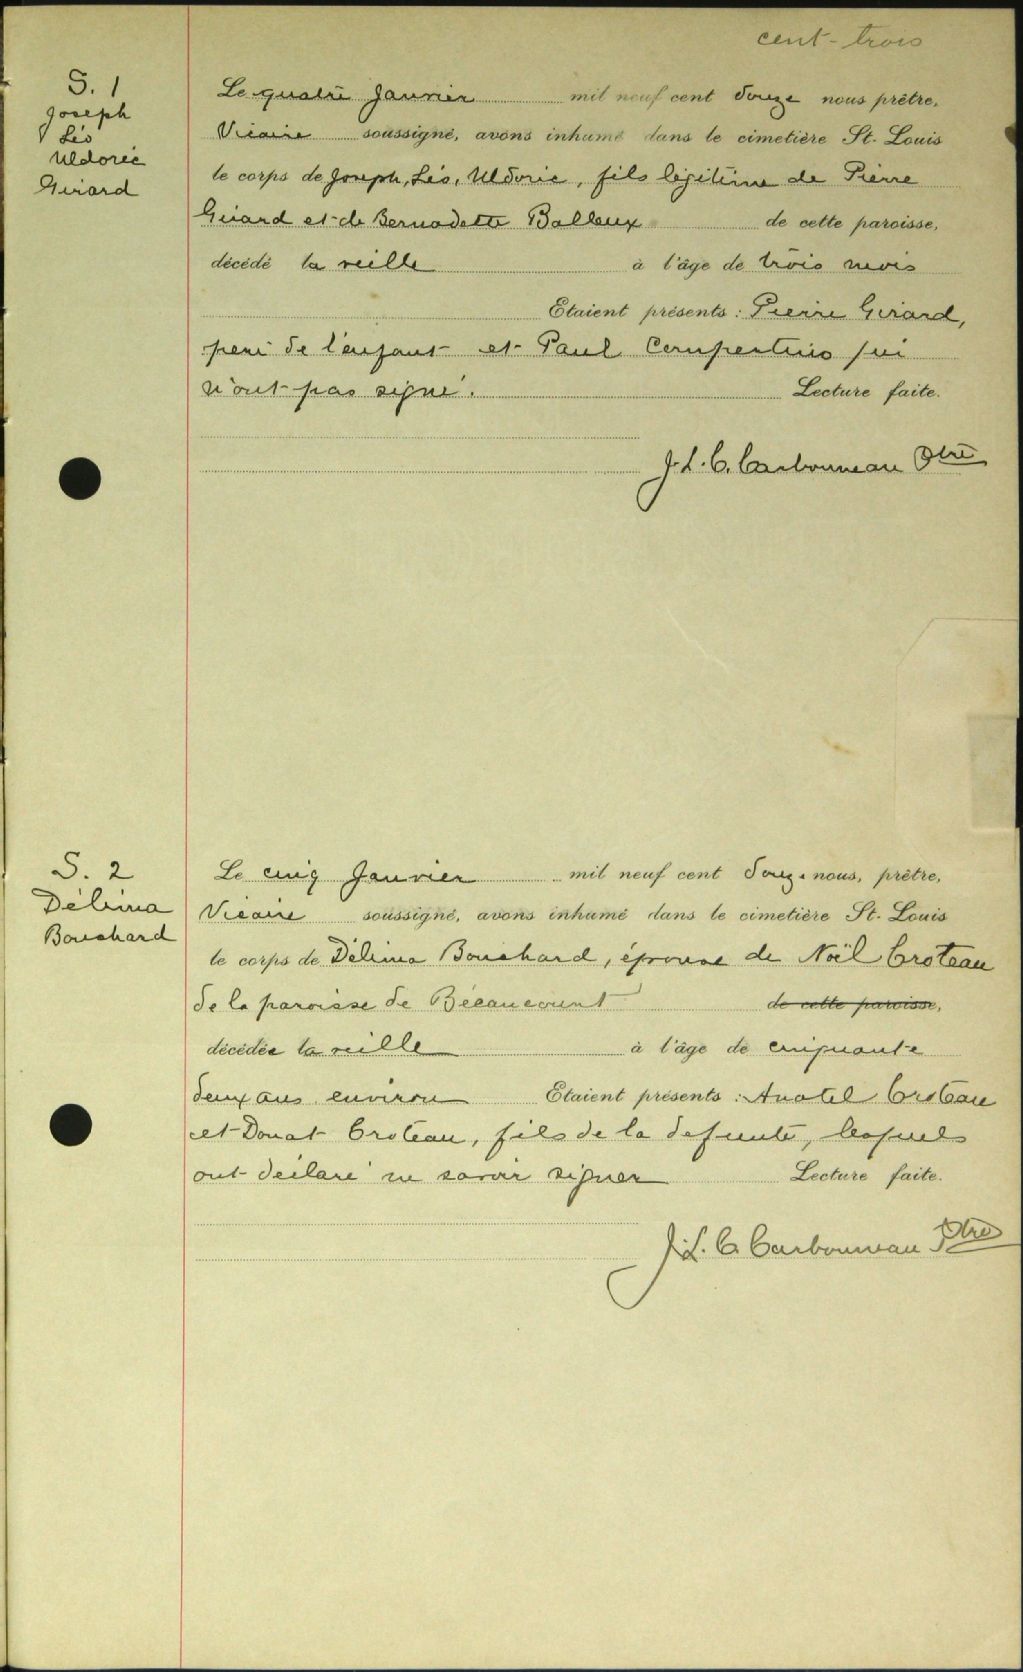 cent-trois
S. 1
Joseph
Léo
Uldoric
Girard
Le quatre Janvier mil neuf cent douze nous prêtre,
Vicaire soussigné, avons inhumé dans le cimetière St. Louis
le corps de Joseph, Léo, Uldoric, fils légitime de Pierre
Girard et de Bernadette Balleux de cette paroisse,
décédé la veille à l'âge de trois mois
Etaient présents : Pierre Girard,
père de l'enfant et Paul qui
n'ont pas signé. Lecture faite.
J. L. C. Carbonneau Ptre
S. 2
Délima
Bouchard
Le cinq Janvier mil neuf cent douze nous, prêtre,
Vicaire soussigné, avons inhumé dans le cimetière St. Louis
le corps de Délima Bouchard, épouse de Noël Croteau
de la paroisse de Bécancourt de cette paroisse,
décédée la veille à l'âge de cinquante
deux ans environ Etaient présents : Anatel Croteau
et Donat Croteau, fils de la defunte, lesquels
ont déclaré ne savoir signer Lecture faite.
J. L. C. Carbonneau Ptre